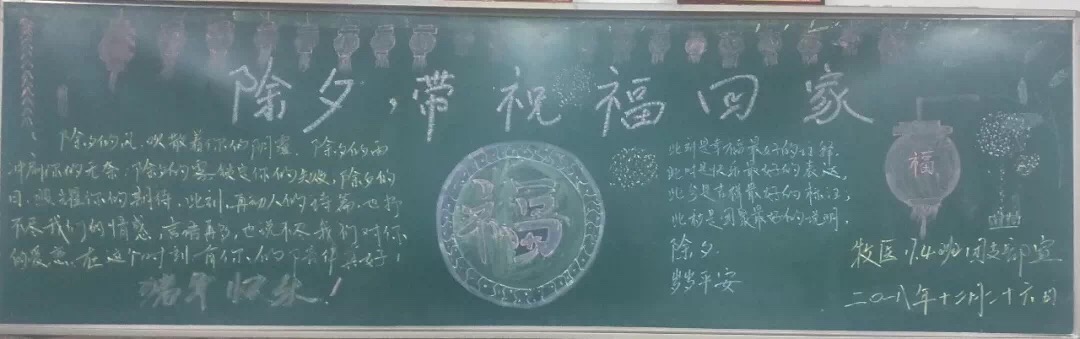 除夕,带祝福回家
除夕的风,吹散着你的阴霾,除夕的雨
冲刷你的无奈,除夕的雪 你的失败,除夕的
日,照耀你的期待,此刻,再动人的诗篇,也抒
不尽我们的情感,言语再多,也说不尽我们对你
的爱恋,在这个时刻有你们的 真好!
快乐!
福
此刻是幸福最好的注解,
此时是快乐最好的表达,
此岁是吉祥最好的标注,
此材是团聚最好的说明,
除夕
岁岁平安
福
牧医 团支部宣
二〇一八年十二月二十六日